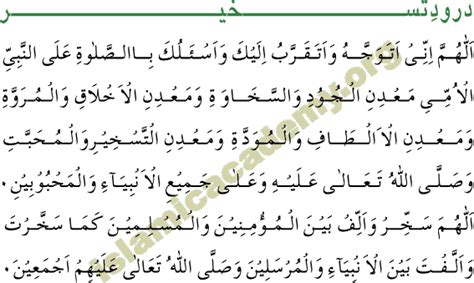 درودِتســـخیـــر
اَللّٰهُمَّ اِنِّیْ اَتَوَجَّهُ وَاَتَقَرَّبُ اِلَيْكَ وَاَسْئَلُكَ بِاالصَّلٰوةِ عَلَی النَّبِیِّ
الْاُمِّیِ مَعْدِنِ الْجُوْدِ وَالسَّخَاوَةِ وَمَعْدِنِ الْاَخْلَاقِ وَالْمُرَوَّةِ
وَمَعْدِنِ الْاَلْطَافِ وَالْمُوَدَّةِ وَمَعْدِنِ التَّسْخِيْرِ وَالْمُحَبَّتِ
وَصَلَّی اللهُ تَعَالٰی عَلَيْهِ وَعَلٰی جَمِيْعِ الْاَنْبِيَآءِ وَالْمَحْبُوْبِيْنَ ۰
اَللّٰهُمَّ سَخِّرْ وَاَلِّفْ بَيْنَ الْمُؤْمِنِيْنَ وَالْمُسْلِمِيْنَ كَمَا سَخَّرْتَ
وَاَلَّفْتَ بَيْنَ الْاَنْبِيَآءِ وَالْمُرْسَلِيْنَ وَصَلَّی اللهُ تَعَالٰی عَلَيْهِمْ اَجْمَعِيْنَ ۰
islamicacademy.org